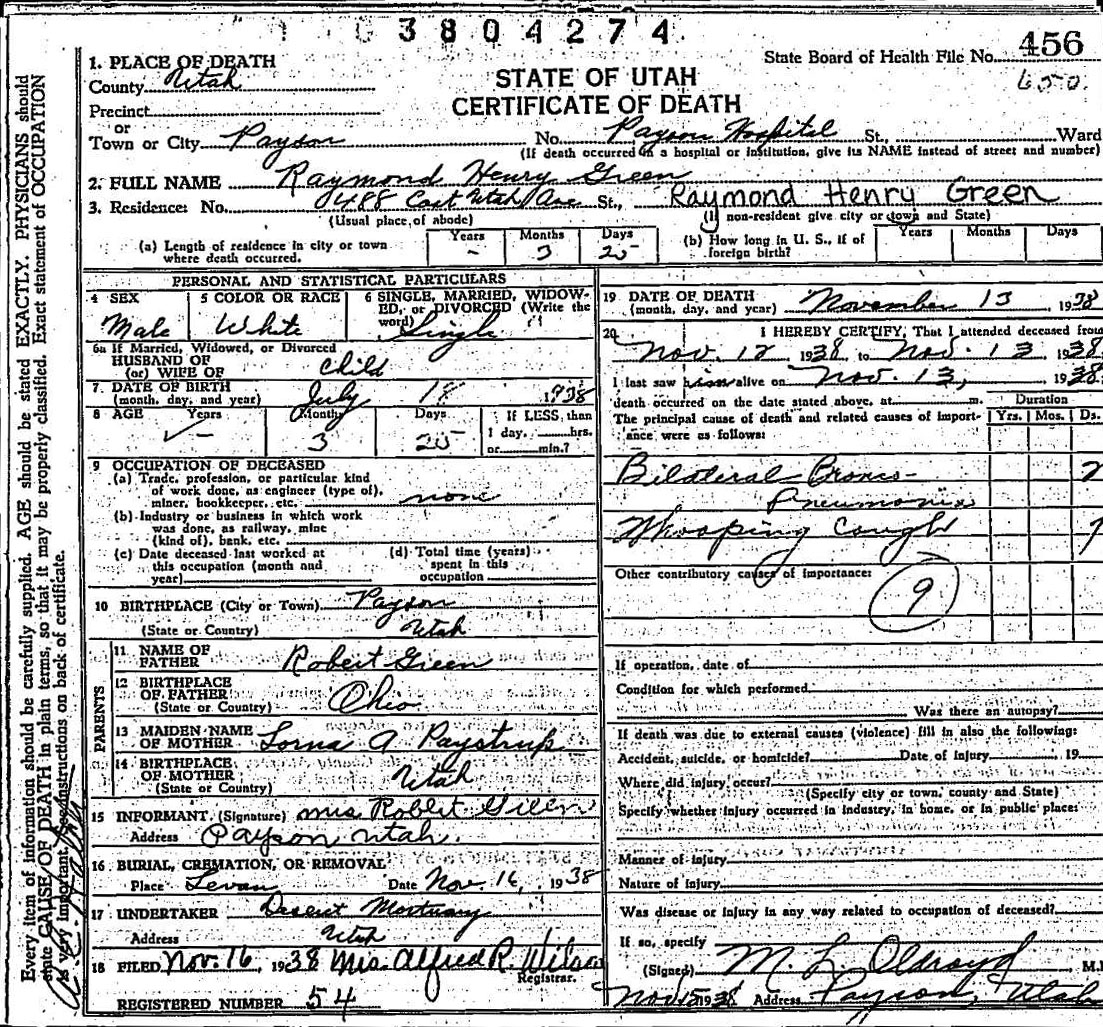 3804274
State Board of Health File No. 456
650.
STATE OF UTAH
CERTIFICATE OF DEATH
1. PLACE OF DEATH
County Utah
Precinct
or
Town or City Payson No. Payson Hospital St., Ward
(If death occurred in a hospital or institution, give its NAME instead of street and number)
2. FULL NAME Raymond Henry Green
3. Residence: No. 488 East Utah Ave St., Raymond Henry Green
(Usual place of abode) (If non-resident give city or town and State)
(a) Length of residence in city or town where death occurred. Years - Months 3 Days 25
(b) How long in U. S., if of foreign birth? Years Months Days
PERSONAL AND STATISTICAL PARTICULARS
4 SEX 5 COLOR OR RACE 6 SINGLE, MARRIED, WIDOWED, or DIVORCED (Write the word)
Male White Single
6a If Married, Widowed, or Divorced
HUSBAND OF
(or) WIFE OF Child
7 DATE OF BIRTH
(month, day, and year) July 18 1938
8 AGE Years Months Days If LESS than
- 3 25 1 day, hrs.
or min.?
9 OCCUPATION OF DECEASED
(a) Trade, profession, or particular kind
of work done, as engineer (type of),
miner, bookkeeper, etc. none
(b) Industry or business in which work
was done, as railway, mine
(kind of), bank, etc.
(c) Date deceased last worked at
this occupation (month and
year)
(d) Total time (years)
spent in this
occupation
10 BIRTHPLACE (City or Town) Payson
(State or Country) Utah
PARENTS
11 NAME OF
FATHER Robert Green
12 BIRTHPLACE
OF FATHER
(State or Country) Ohio
13 MAIDEN NAME
OF MOTHER Lorna A Paystrup
14 BIRTHPLACE
OF MOTHER
(State or Country) Utah
15 INFORMANT (Signature) Mrs Robert Green
Address Payson Utah.
16 BURIAL, CREMATION, OR REMOVAL
Place Levan Date Nov. 16, 1938
17 UNDERTAKER Deseret Mortuary
Address Utah
18 FILED Nov. 16, 1938 Mrs. Alfred R. Wilson
Registrar.
REGISTERED NUMBER 54
19 DATE OF DEATH
(month, day, and year) November 13 1938
20 I HEREBY CERTIFY, That I attended deceased from
Nov. 12 1938 to Nov. 13 1938
I last saw him alive on Nov. 13, 1938
death occurred on the date stated above, at m. Duration
The principal cause of death and related causes of importance were as follows: Yrs. Mos. Ds.
Bilateral Bronco-
Pneumonia
Whooping Cough
Other contributory causes of importance:
9
If operation, date of
Condition for which performed
Was there an autopsy?
If death was due to external causes (violence) fill in also the following:
Accident, suicide, or homicide? Date of injury, 19
Where did injury occur?
(Specify city or town, county and State)
Specify whether injury occurred in industry, in home, or in public place:
Manner of injury
Nature of injury
Was disease or injury in any way related to occupation of deceased?
If so, specify
(Signed) M. L. Oldroyd M.
Nov 15 1938 Address Payson, Utah
Every item of information should be carefully supplied. AGE should be stated EXACTLY. PHYSICIANS should
state CAUSE OF DEATH in plain terms, so that it may be properly classified. Exact statement of OCCUPATION
is very important. See instructions on back of certificate.